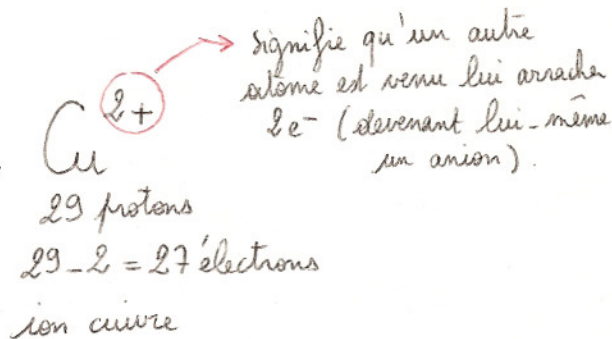 signifie qu'un autre
atome est venu lui arracher
2e⁻ (devenant lui-même
un anion).
Cu²⁺
29 protons
29-2 = 27 électrons
ion cuivre